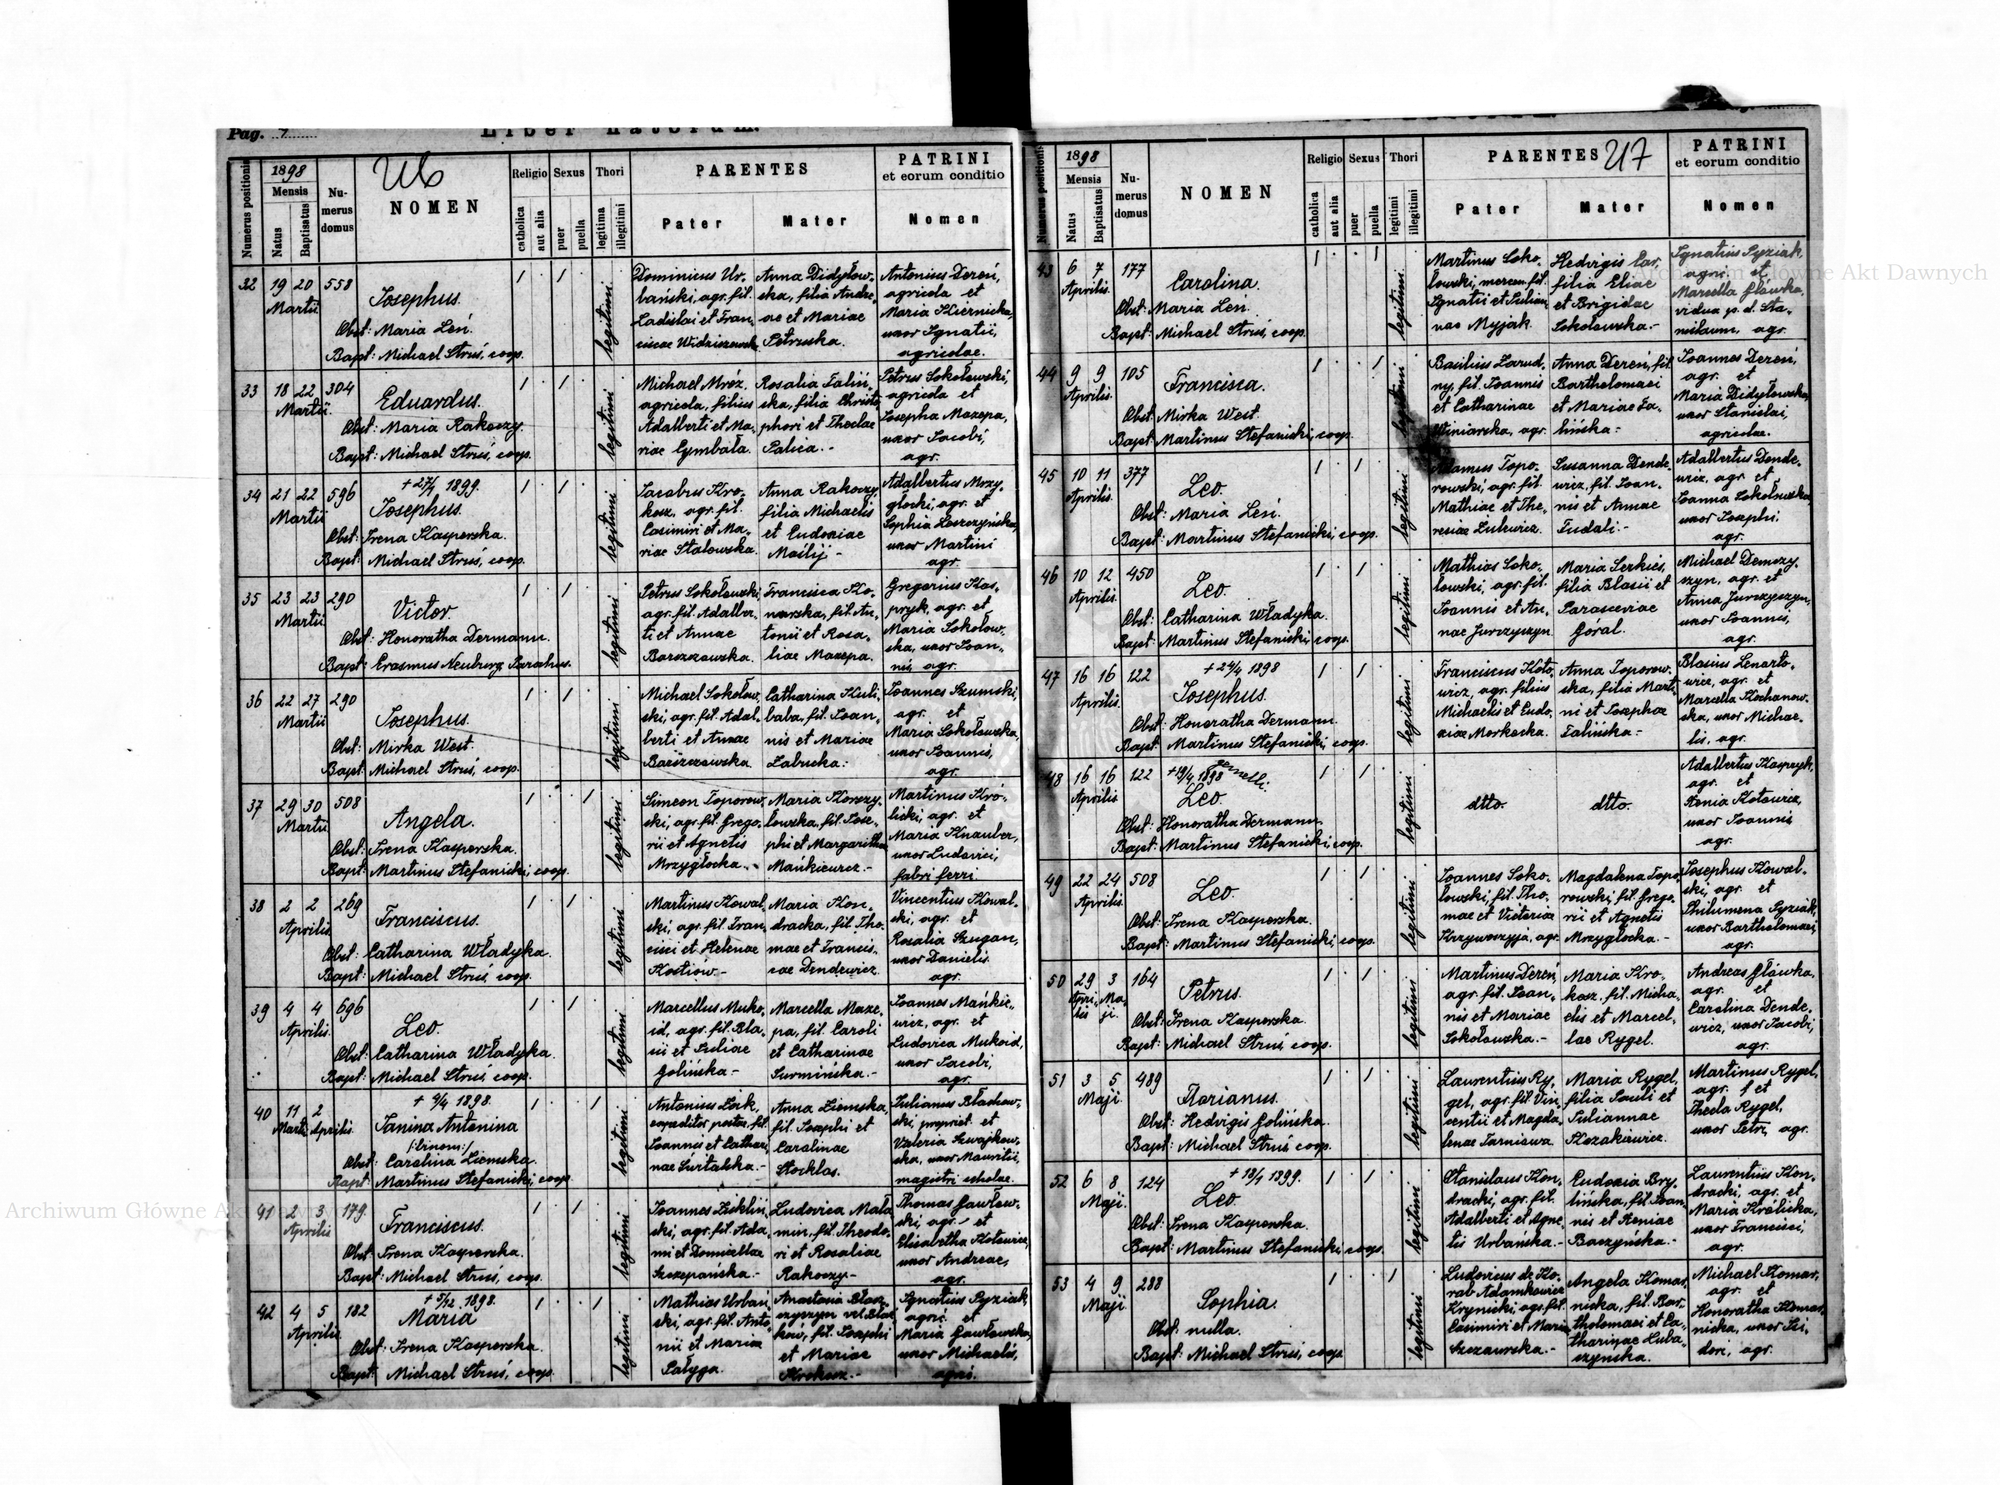 Pag.
Liber natorum.
Numerus positionis
1898
Mensis
Natus
Baptisatus
Numerus domus
NOMEN
Religio
catholica
aut alia
Sexus
puer
puella
Thori
legitima
illegitimi
PARENTES
Pater
Mater
PATRINI
et eorum conditio
Nomen
32 19 20 558
Martii
Josephus.
Obst: Maria Leń.
Bapt: Michael Struś, coop.
legitimi
Dominicus Ur-
bański, agr. fil.
Ladislai et Fran-
ciscae
Anna Didyłow-
ska, filia Andre-
ae et Mariae
Petruska.
Antonius Dereń,
agricola et
Maria Kiernicka,
uxor Ignatii,
agricolae.
33 18 22 304
Martii
Eduardus.
Obst: Maria Rakoczy.
Bapt: Michael Struś, coop.
legitimi
Michael Mróz,
agricola, filius
Adalberti et Ma-
riae Cymbała.
Rosalia Faliń-
ska, filia Christo-
phori et Theclae
Palica.-
Petrus Sokołowski,
agricola et
Josepha Mazepa,
uxor Jacobi,
agr.
34 21 22 596
Martii
+ 27/4 1899.
Josephus.
Obst: Irena Kasperska.
Bapt: Michael Struś, coop.
legitimi
Jacobus Kro-
kosz, agr. fil.
Casimiri et Ma-
riae Stalowska.
Anna Rakoczy
filia Michaelis
et Eudoxiae
Adalbertus Mrzy-
głocki, agr. et
Sophia
uxor Martini
agr.
35 23 23 290
Martii
Victor.
Obst: Honoratha Dermann.
Bapt: Erasmus Neuburg Parochus.
legitimi
Petrus Sokołowski,
agr. fil. Adalber-
ti et Annae
Francisca Ko-
narska, fil. An-
tonii et Rosa-
liae Mazepa.
Gregorius Kas-
pryk, agr. et
Maria Sokołow-
ska, uxor Joan-
nis agr.
36 22 27 290
Martii
Josephus.
Obst: Mirka West.
Bapt: Michael Struś, coop.
legitimi
Michael Sokołow-
ski, agr. fil. Adal-
berti et Annae
Catharina Kuli-
baba, fil. Joan-
nis et Mariae
Łabucka.
Joannes Szumski,
agr. et
Maria Sokołowska,
uxor Joannis,
agr.
37 29 30 508
Martii
Angela.
Obst: Irena Kasperska.
Bapt: Martinus Stefanicki, coop.
legitimi
Simeon Toporow-
ski, agr. fil. Grego-
rii et Agnetis
Mrzygłocka.-
Maria Korczy-
łowska, fil. Jose-
phi et Margarithae
Mańkiewicz.-
Martinus Kró-
licki, agr. et
Maria Knauber,
uxor Ludovici,
fabri ferri.
38 2 2 269
Aprilis
Franciscus.
Obst: Catharina Władyka.
Bapt: Michael Struś, coop.
legitimi
Martinus Kowal-
ski, agr. fil. Fran-
cisci et Helenae
Kostiów.-
Maria Kon-
dracka, fil. Tho-
mae et Francis-
cae Dendewicz.
Vincentius Kowal-
ski, agr. et
Rosalia Szugan,
uxor Danielis
agr.
39 4 4 696
Aprilis
Leo.
Obst: Catharina Władyka.
Bapt: Michael Struś coop.
legitimi
Marcellus Muko-
id, agr. fil. Bla-
sii et Juliae
Golińska.-
Marcella Maze-
pa, fil. Caroli
et Catharinae
Surmińska.-
Joannes Mańkie-
wicz, agr. et
Ludovica Mukoid,
uxor Jacobi,
agr.
40 11 2
Martii Aprilis
+ 9/4 1898.
Janina Antonina
/:binom:/
Obst: Carolina Ziemska
Bapt: Martinus Stefanicki, coop.
legitimi
Antonius Zork,
expeditor postae, fil.
Joannis et Cathari-
nae
Anna Ziemska,
fil. Josephi et
Carolinae
Stocklas.
Julianus Błachow-
ski, propriet. et
Valeria Szwajkow-
ska, uxor Mauritii,
magistri scholae.
41 2 3 179
Aprilis
Franciscus.
Obst: Irena Kasperska.
Bapt: Michael Struś, coop.
legitimi
Joannes
ski, agr. fil. Ada-
mi et Domicellae
Szczepańska.-
Ludovica Mala-
min, fil. Theodo-
ri et Rosaliae
Rakoczy-
Thomas Gawłow-
ski, agr. et
Elisabetha Kotowicz,
uxor Andreae,
agr.
42 4 5 182
Aprilis
+ 5/12 1898.
Maria
Obst: Irena Kasperska.
Bapt: Michael Struś, coop.
legitimi
Mathias Urbań-
ski, agr. fil. Anto-
nii et Maria
Pałyga.
Anastasia Błasz-
czyszyn vel Błaż-
ków, fil. Josephi
et Mariae
Krokosz.-
Ignatius Pyziak,
agric. et
Maria Gawłowska,
uxor Michaelis,
agric.
Numerus positionis
1898
Mensis
Natus
Baptisatus
Numerus domus
NOMEN
Religio
catholica
aut alia
Sexus
puer
puella
Thori
legitimi
illegitimi
PARENTES
217
Pater
Mater
PATRINI
et eorum conditio
Nomen
43 6 7 177
Aprilis
Carolina.
Obst: Maria Leń.
Bapt: Michael Struś, coop.
legitimi
Martinus Soko-
łowski, mercen. fil.
Ignatii et Julian-
nae Myjak.
Hedvigis
filia Eliae
et Brigidae
Sokołowska.-
Ignatius Pyziak,
agric. et
Marcella Główka,
vidua p. d. Sta-
nislaum, agr.
44 9 9 105
Aprilis
Francisca.
Obst: Mirka West.
Bapt: Martinus Stefanicki, coop.
legitimi
Basilius Zarud-
ny, fil. Joannis
et Catharinae
Winiarska, agr.
Anna Dereń, fil.
Bartholomaei
et Mariae Fa-
lińska-
Joannes Dereń,
agr. et
Maria Didyłowska,
uxor Stanislai,
agricolae.
45 10 11 377
Aprilis
Leo.
Obst: Maria Leń.
Bapt: Martinus Stefanicki, coop.
legitimi
Adamus Topo-
rowski, agr. fil.
Mathiae et The-
resiae
Susanna Dende-
wicz, fil. Joan-
nis et Annae
Fudali.-
Adalbertus Dende-
wicz, agr. et
Joanna Sokołowska,
uxor Josephi,
agr.
46 10 12 450
Aprilis
Leo.
Obst: Catharina Władyka.
Bapt: Martinus Stefanicki, coop.
legitimi
Mathias Soko-
łowski, agr. fil.
Joannis et An-
nae Jurczyszyn.
Maria Serkies,
filia Blasii et
Parasceviae
Góral.
Michael Demczy-
szyn, agr. et
Anna Jurczyszyn,
uxor Joannis,
agr.
47 16 16 122
Aprilis
+ 24/4 1898
Josephus.
Obst: Honoratha Dermann.
Bapt: Martinus Stefanicki, coop.
legitimi
Franciscus Koto-
wicz, agr. filius
Michaelis et Eudo-
xiae Morkocka.
Anna Toporow-
ska, filia Marti-
ni et Josephae
Falińska.-
Blasius Lenarto-
wicz, agr. et
Marcella Kochanow-
ska, uxor Michae-
lis, agr.
48 16 16 122
Aprilis
+19/4 1898 gemelli.
Leo.
Obst: Honoratha Dermann.
Bapt: Martinus Stefanicki, coop.
legitimi
dtto.
dtto.
Adalbertus Kasprzyk,
agr. et
Xenia Kotowicz,
uxor Joannis
agr.
49 22 24 508
Aprilis
Leo.
Obst: Irena Kasperska.
Bapt: Martinus Stefanicki, coop.
legitimi
Joannes Soko-
łowski, fil. Tho-
mae et Victoriae
Krzywoszyja, agr.
Magdalena Topo-
rowski, fil. Grego-
rii et Agnetis
Mrzygłocka.-
Josephus Kowal-
ski, agr. et
Philumena Pyziak,
uxor Bartholomaei,
agr.
50 29 3 164
Aprilis Maji
Petrus.
Obst: Irena Kasperska.
Bapt: Michael Struś, coop.
legitimi
Martinus Dereń,
agr. fil. Joan-
nis et Mariae
Sokołowska.-
Maria Kro-
kosz, fil. Micha-
elis et Marcel-
lae Rygel.
Andreas Główka,
agr. et
Carolina Dende-
wicz, uxor Jacobi,
agr.
51 3 5 489
Maji
Florianus.
Obst: Hedvigis Golińska.
Bapt: Michael Struś coop.
legitimi
Laurentius Ry-
gel, agr. fil. Vin-
centii et Magda-
lenae Tarnawa.
Maria Rygel,
filia Pauli et
Juliannae
Kozakiewicz.
Martinus Rygel,
agr. et
Thecla Rygel,
uxor Petri, agr.
52 6 8 124
Maji
+ 18/4 1899.
Leo.
Obst: Irena Kasperska.
Bapt: Martinus Stefanicki, coop.
legitimi
Stanislaus Kon-
dracki, agr. fil.
Adalberti et Agne-
tis Urbańska.-
Eudoxia Bry-
lińska, fil. Joan-
nis et Xeniae
Baczyńska.-
Laurentius Kon-
dracki, agr. et
Maria Królicka,
uxor Francisci,
agr.
53 4 9 288
Maji
Sophia.
Obst: nulla.
Bapt: Michael Struś, coop.
legitimi
Ludovicus de Ko-
rab Adamkowicz
Krynicki, agr. fil.
Casimiri et Mariae
Szczawska.-
Angela Komar-
nicka, fil. Bar-
tholomaei et Ca-
tharinae Luba-
czyńska.
Michael Komar,
agr. et
Honoratha Komar-
nicka, uxor Isi-
dori, agr.
Archiwum Główne Akt Dawnych
Archiwum Główne Akt Dawnych